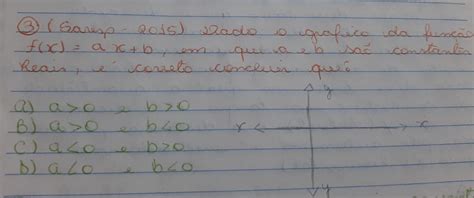 ③ (Saresp-2015) Dado o grafico da função
f(x) = ax+b, em que a e b são constantes
Reais, é correto concluir que:
a) a>0 e b>0
B) a>0 e b<0
C) a<0 e b>0
D) a<0 e b<0
y
x x
y